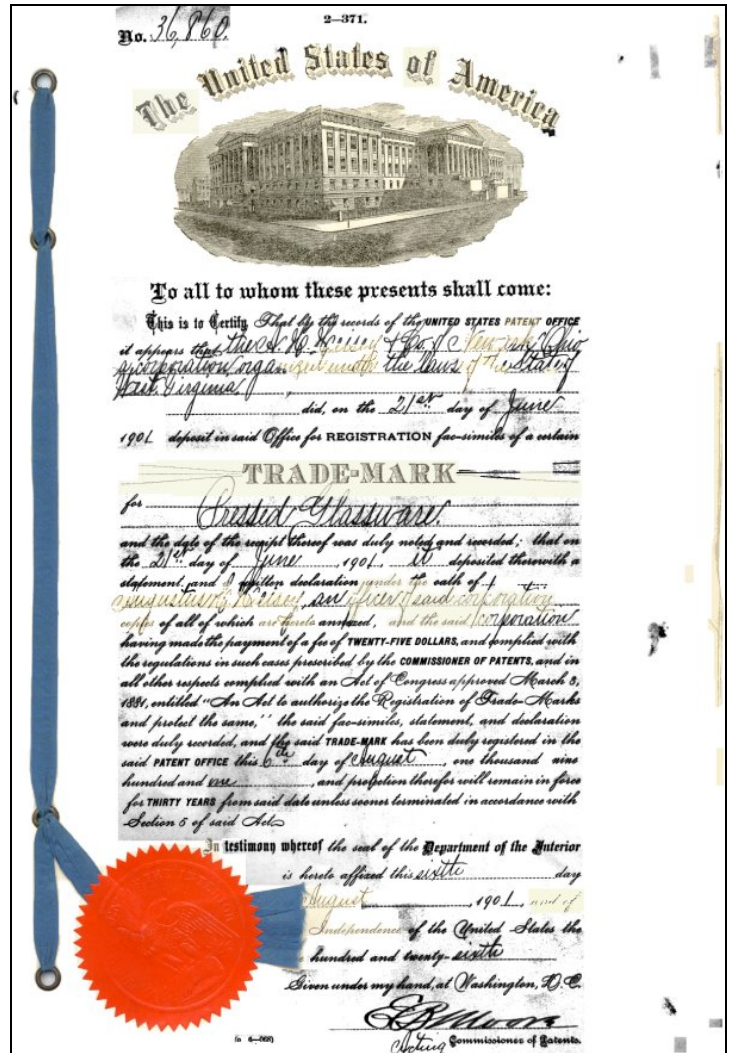 2—371.
No. 36,860.
The United States of America
To all to whom these presents shall come:
This is to Certify That by the records of the UNITED STATES PATENT OFFICE
it appears that the A. H. Heisey & Co. of Newark, Ohio
a corporation organized under the laws of the State of
West Virginia,
did, on the 21st day of June
1901 deposit in said Office for REGISTRATION fac-similes of a certain
TRADE-MARK
for
Pressed Glassware.
and the date of the receipt thereof was duly noted and recorded; that on
the 21st day of June, 1901, it deposited therewith a
statement and written declaration under the oath of
Augustus H. Heisey, an officer of said corporation
copies of all of which are hereto annexed, and the said corporation
having made the payment of a fee of TWENTY-FIVE DOLLARS, and complied with
the regulations in such cases prescribed by the COMMISSIONER OF PATENTS, and in
all other respects complied with an Act of Congress approved March 3,
1881, entitled "An Act to authorize the Registration of Trade-Marks
and protect the same," the said fac-similes, statement, and declaration
were duly recorded, and the said TRADE-MARK has been duly registered in the
said PATENT OFFICE this 6th day of August, one thousand nine
hundred and one, and protection therefor will remain in force
for THIRTY YEARS from said date unless sooner terminated in accordance with
Section 5 of said Act.
In testimony whereof the seal of the Department of the Interior
is hereto affixed this sixth day
August, 1901, and of
Independence of the United States the
hundred and twenty-sixth
Given under my hand, at Washington, D. C.
E. B. Moore
Acting Commissioner of Patents.